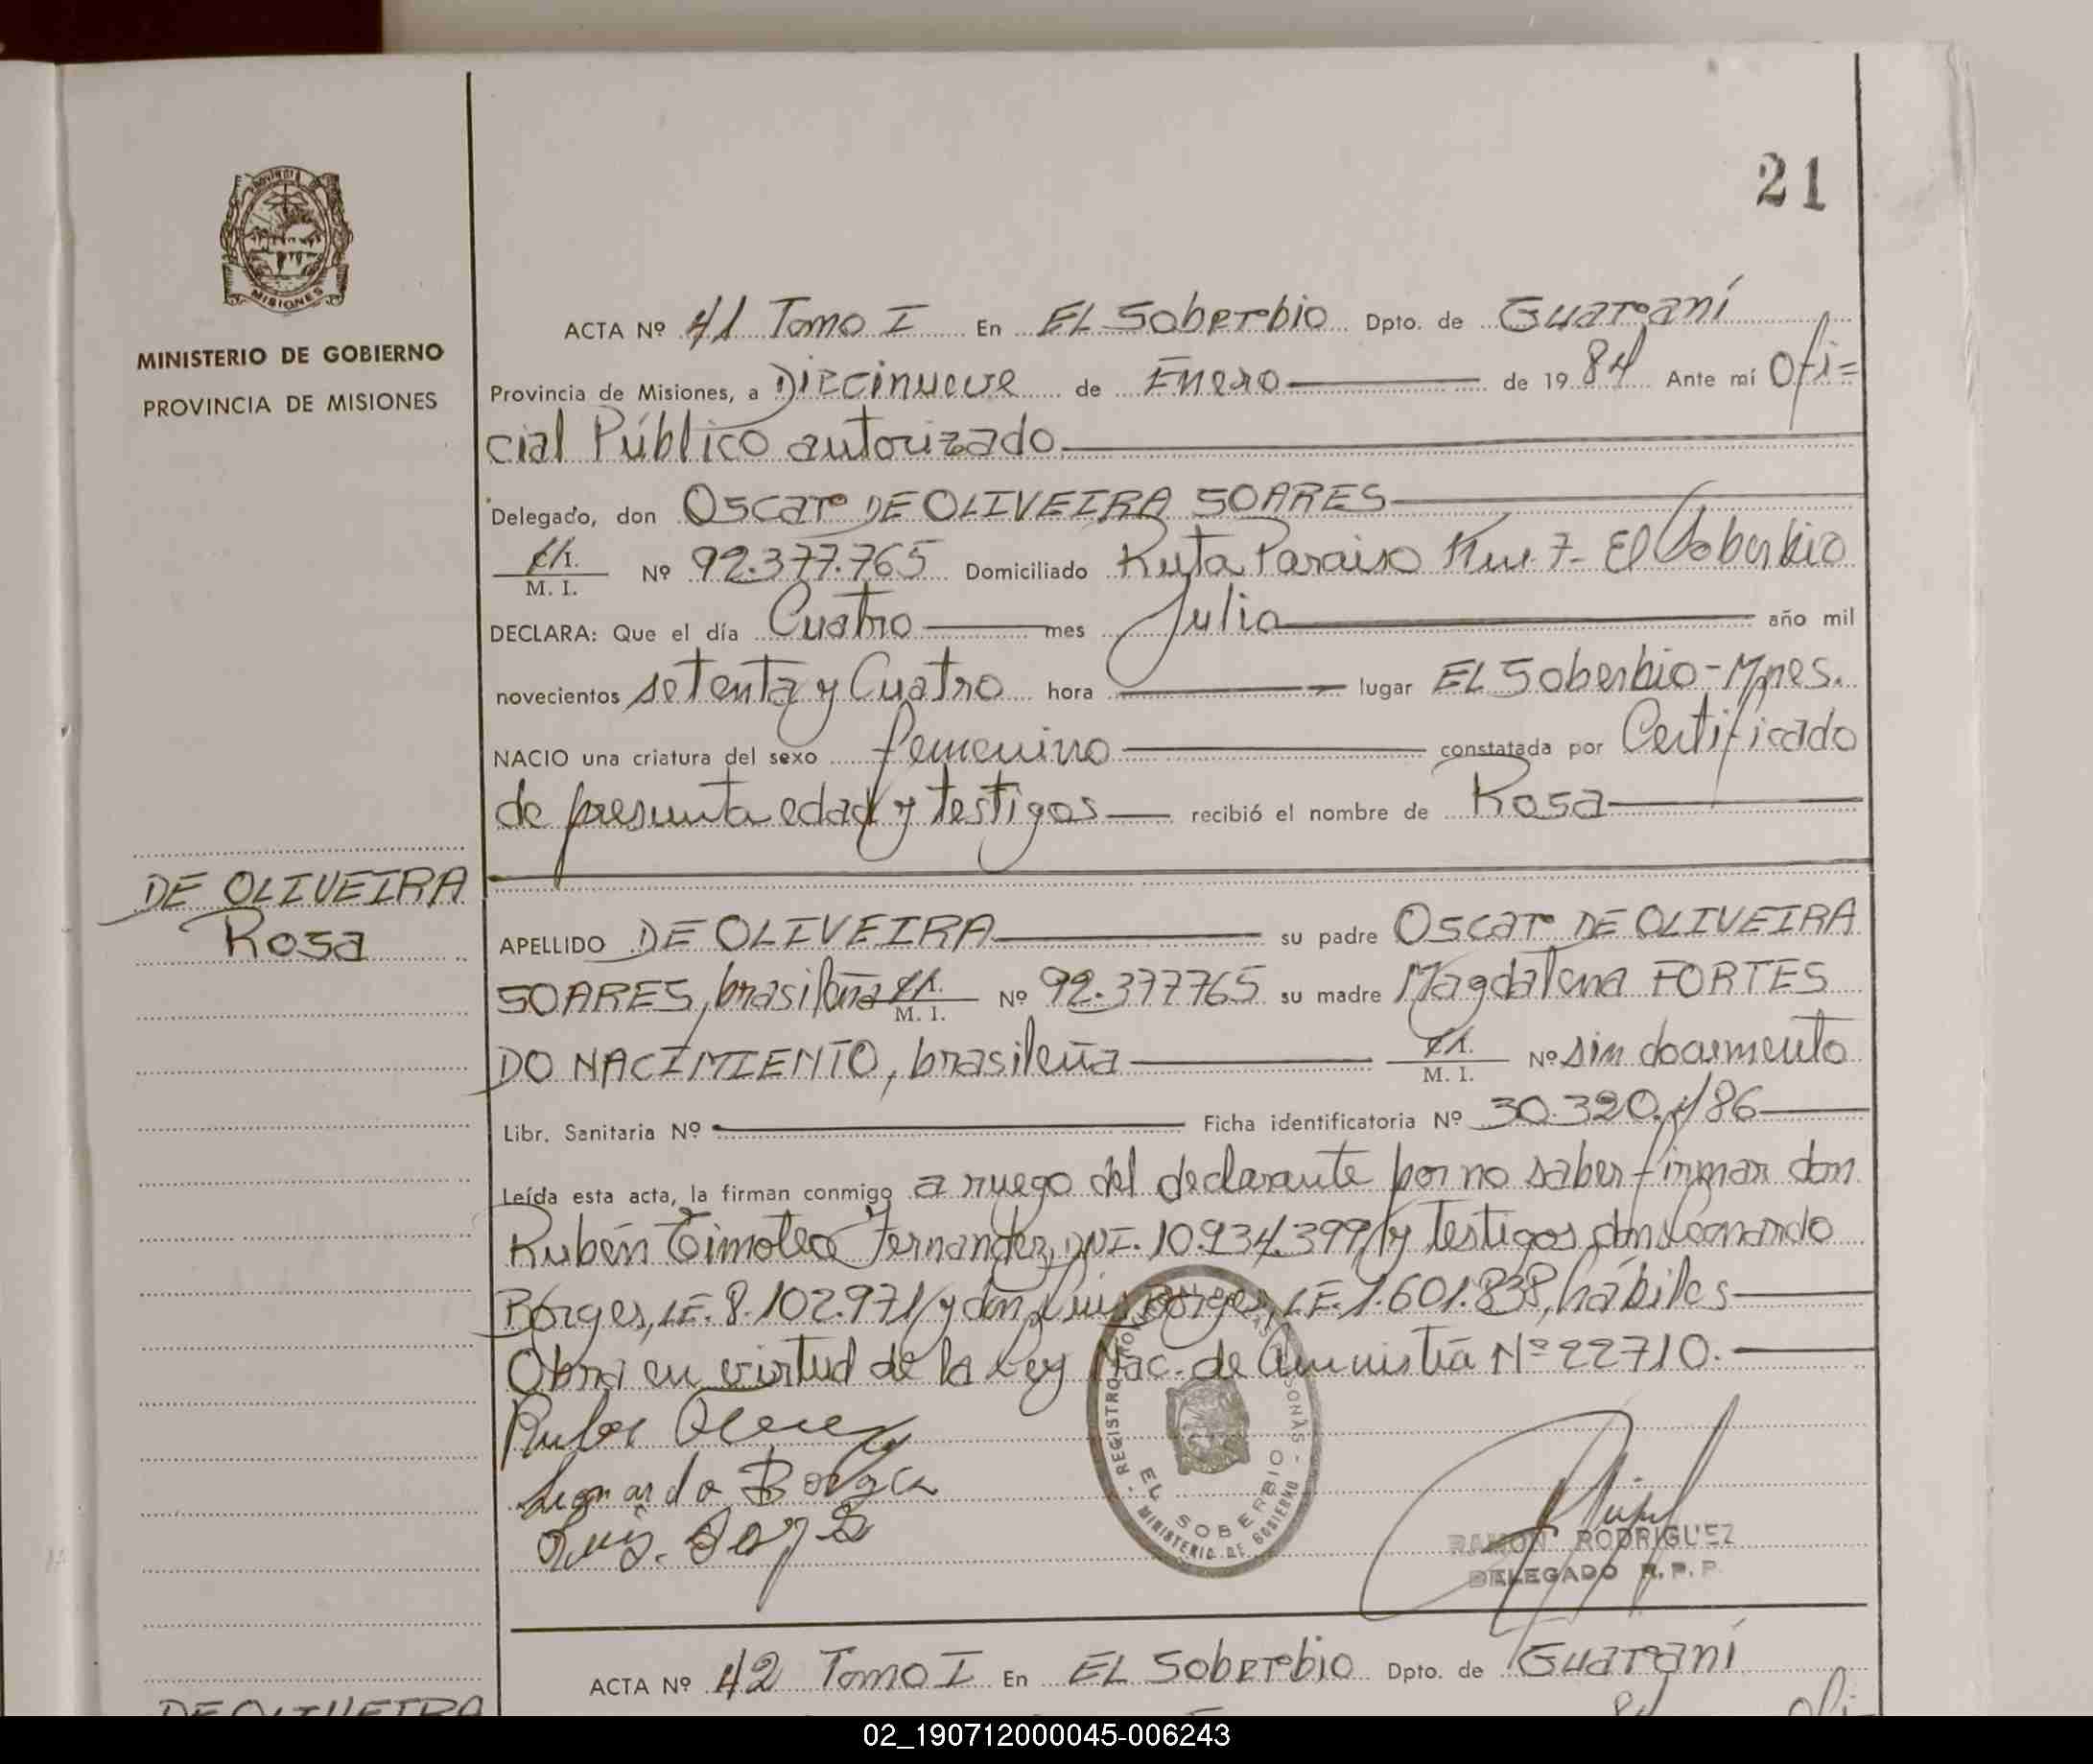 21
PROVINCIA
MISIONES
MINISTERIO DE GOBIERNO
PROVINCIA DE MISIONES
ACTA Nº 41 Tomo I En EL Soberbio Dpto. de Guaraní
Provincia de Misiones, a Diecinueve de Enero de 1984 Ante mí Ofi=
cial Público autorizado
Delegado, don Oscar DE OLIVEIRA SOARES
C.I. M. I. Nº 92.377.765 Domiciliado Ruta Paraiso Km. 7- El Soberbio
DECLARA: Que el día Cuatro mes Julio año mil
novecientos setenta y Cuatro hora lugar EL Soberbio-Mnes.
NACIO una criatura del sexo femenino constatada por Certificado
de presunta edad y testigos recibió el nombre de Rosa
DE OLIVEIRA
Rosa
APELLIDO DE OLIVEIRA su padre Oscar DE OLIVEIRA
SOARES, brasileña C.I. M. I. Nº 92.377765 su madre Magdalena FORTES
DO NACIMIENTO, brasileña C.I. M. I. Nº sin documento
Libr. Sanitaria Nº Ficha identificatoria Nº 30.320.486
Leída esta acta, la firman conmigo a ruego del declarante por no saber firmar don
Rubén Timoteo Fernandez, DNI. 10.934.399/y testigos don Leonardo
Borges, LE. 8.102.971/y don Luis Borges, LE. 1.601.838, hábiles
Obra en virtud de la Ley Nac. de Amnistía Nº 22710.
Leonardo Borges
Luis. Borges
REGISTRO
EL SOBERBIO
MINISTERIO DE GOBIERNO
RAMON RODRIGUEZ
DELEGADO R. P. P.
ACTA Nº 42 Tomo I En EL Soberbio Dpto. de Guaraní
DE OLIVEIRA
84 Ofi-
02_190712000045-006243